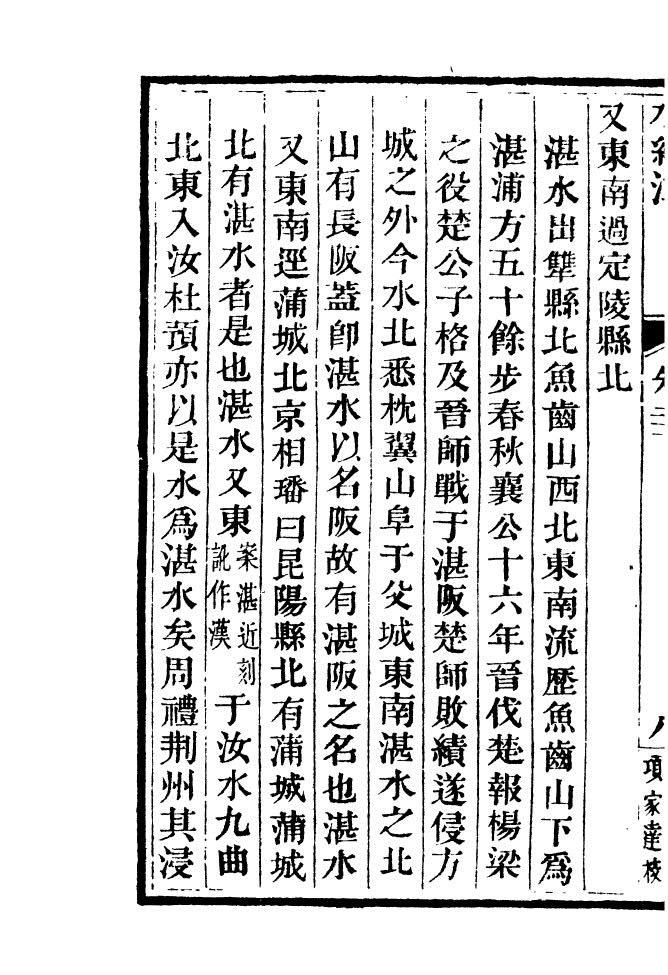 又東南過定陵縣北
湛水出犨縣北魚齒山西北東南流歷魚齒山下爲
湛浦方五十餘步春秋襄公十六年晉伐楚報楊梁
之役楚公子格及晉師戰于湛阪楚師敗績遂侵方
城之外今水北悉枕翼山阜于父城東南湛水之北
山有長阪蓋卽湛水以名阪故有湛阪之名也湛水
又東南逕蒲城北京相璠曰昆陽縣北有蒲城蒲城
北有湛水者是也湛水又東案湛近刻訛作漢于汝水九曲
北東入汝杜預亦以是水爲湛水矣周禮荆州其浸
項家達校